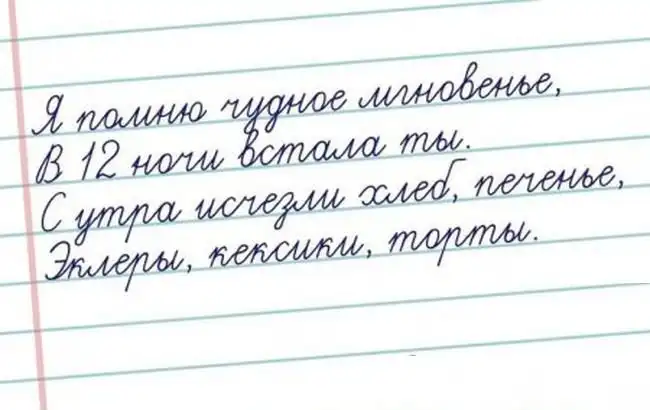 Я помню чудное мгновенье,
В 12 ночи встала ты.
С утра исчезли хлеб, печенье,
Эклеры, кексики, торты.